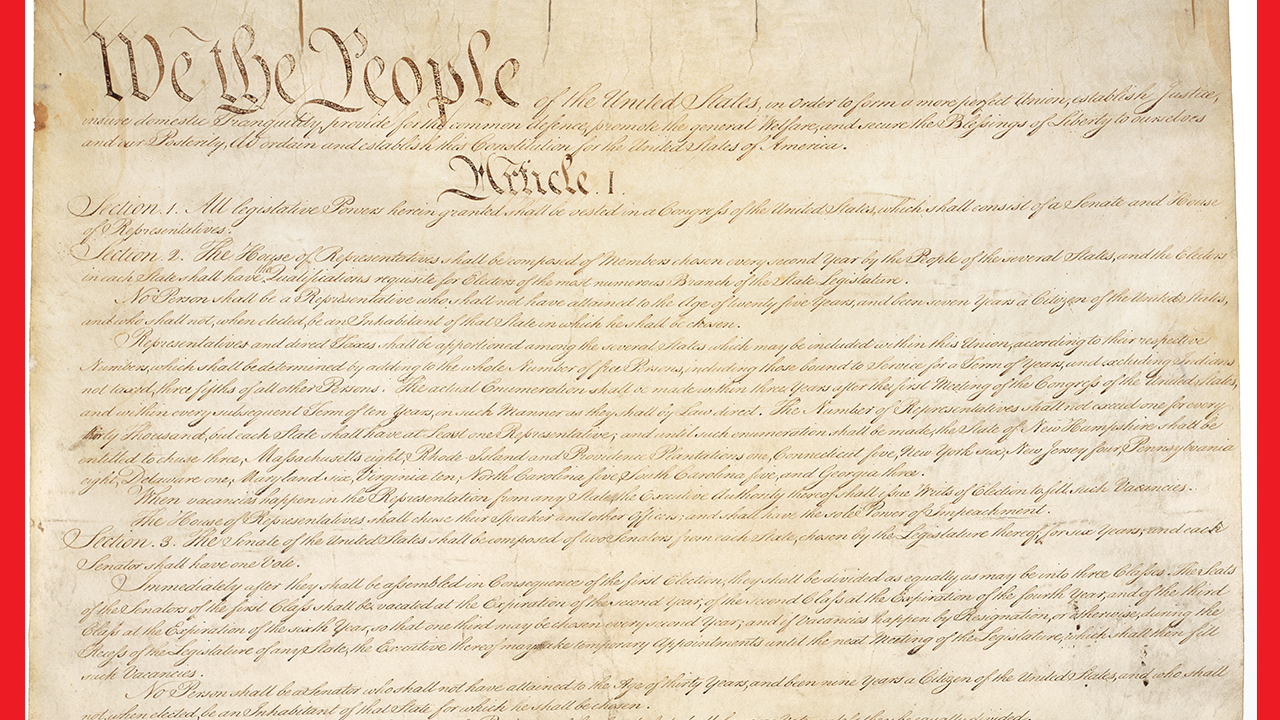 We the People of the United States, in Order to form a more perfect Union, establish Justice,
insure domestic Tranquility, provide for the common defence, promote the general Welfare, and secure the Blessings of Liberty to ourselves
and our Posterity, do ordain and establish this Constitution for the United States of America.
Article. I.
Section. 1. All legislative Powers herein granted shall be vested in a Congress of the United States, which shall consist of a Senate and House
of Representatives.
Section. 2. The House of Representatives shall be composed of Members chosen every second Year by the People of the several States, and the Electors
in each State shall have the Qualifications requisite for Electors of the most numerous Branch of the State Legislature.
No Person shall be a Representative who shall not have attained to the Age of twenty five Years, and been seven Years a Citizen of the United States,
and who shall not, when elected, be an Inhabitant of that State in which he shall be chosen.
Representatives and direct Taxes shall be apportioned among the several States which may be included within this Union, according to their respective
Numbers, which shall be determined by adding to the whole Number of free Persons, including those bound to Service for a Term of Years, and excluding Indians
not taxed, three fifths of all other Persons. The actual Enumeration shall be made within three Years after the first Meeting of the Congress of the United States,
and within every subsequent Term of ten Years, in such Manner as they shall by Law direct. The Number of Representatives shall not exceed one for every
thirty Thousand, but each State shall have at Least one Representative; and until such enumeration shall be made, the State of New Hampshire shall be
entitled to chuse three, Massachusetts eight, Rhode-Island and Providence Plantations one, Connecticut five, New York six, New Jersey four, Pennsylvania
eight, Delaware one, Maryland six, Virginia ten, North Carolina five, South Carolina five, and Georgia three.
When vacancies happen in the Representation from any State, the Executive Authority thereof shall issue Writs of Election to fill such Vacancies.
The House of Representatives shall chuse their Speaker and other Officers; and shall have the sole Power of Impeachment.
Section. 3. The Senate of the United States shall be composed of two Senators from each State, chosen by the Legislature thereof, for six Years; and each
Senator shall have one Vote.
Immediately after they shall be assembled in Consequence of the first Election, they shall be divided as equally as may be into three Classes. The Seats
of the Senators of the first Class shall be vacated at the Expiration of the second Year, of the second Class at the Expiration of the fourth Year, and of the third
Class at the Expiration of the sixth Year, so that one third may be chosen every second Year; and if Vacancies happen by Resignation, or otherwise, during the
Recess of the Legislature of any State, the Executive thereof may make temporary Appointments until the next Meeting of the Legislature, which shall then fill
such Vacancies.
No Person shall be a Senator who shall not have attained to the Age of thirty Years, and been nine Years a Citizen of the United States, and who shall
not, when elected, be an Inhabitant of that State for which he shall be chosen.